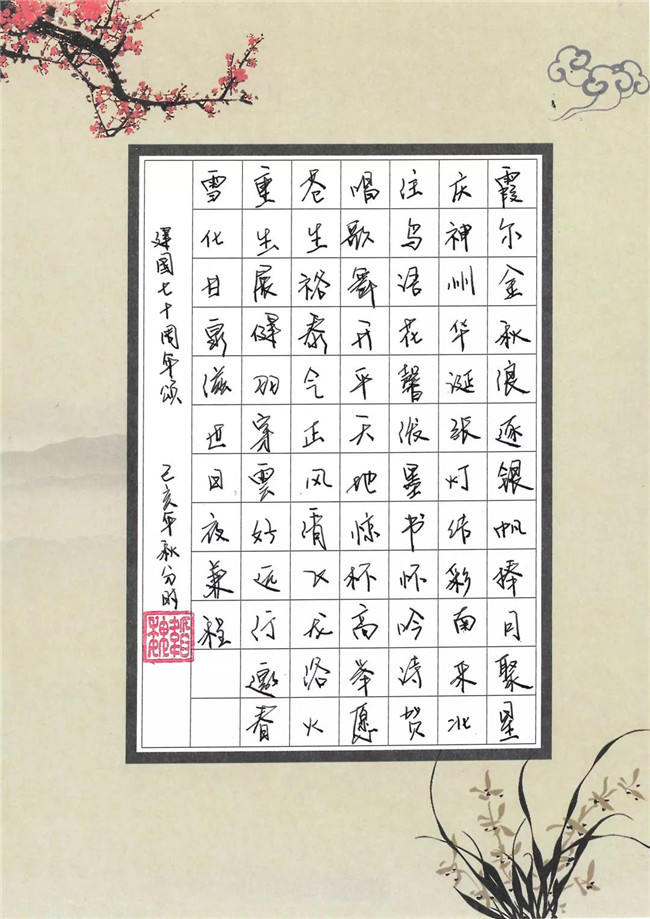 霞尔金秋浪逐银帆捧日聚星
庆神州华诞张灯结彩南来北
往鸟语花馨泼墨书怀吟诗贺
唱歌舞升平天地惊杯高举愿
苍生裕泰今正风清飞龙浴火
重生展健羽穿雲好远行邀春
雪化甘泉滋世日夜兼程
建国七十周年颂 己亥年秋分时